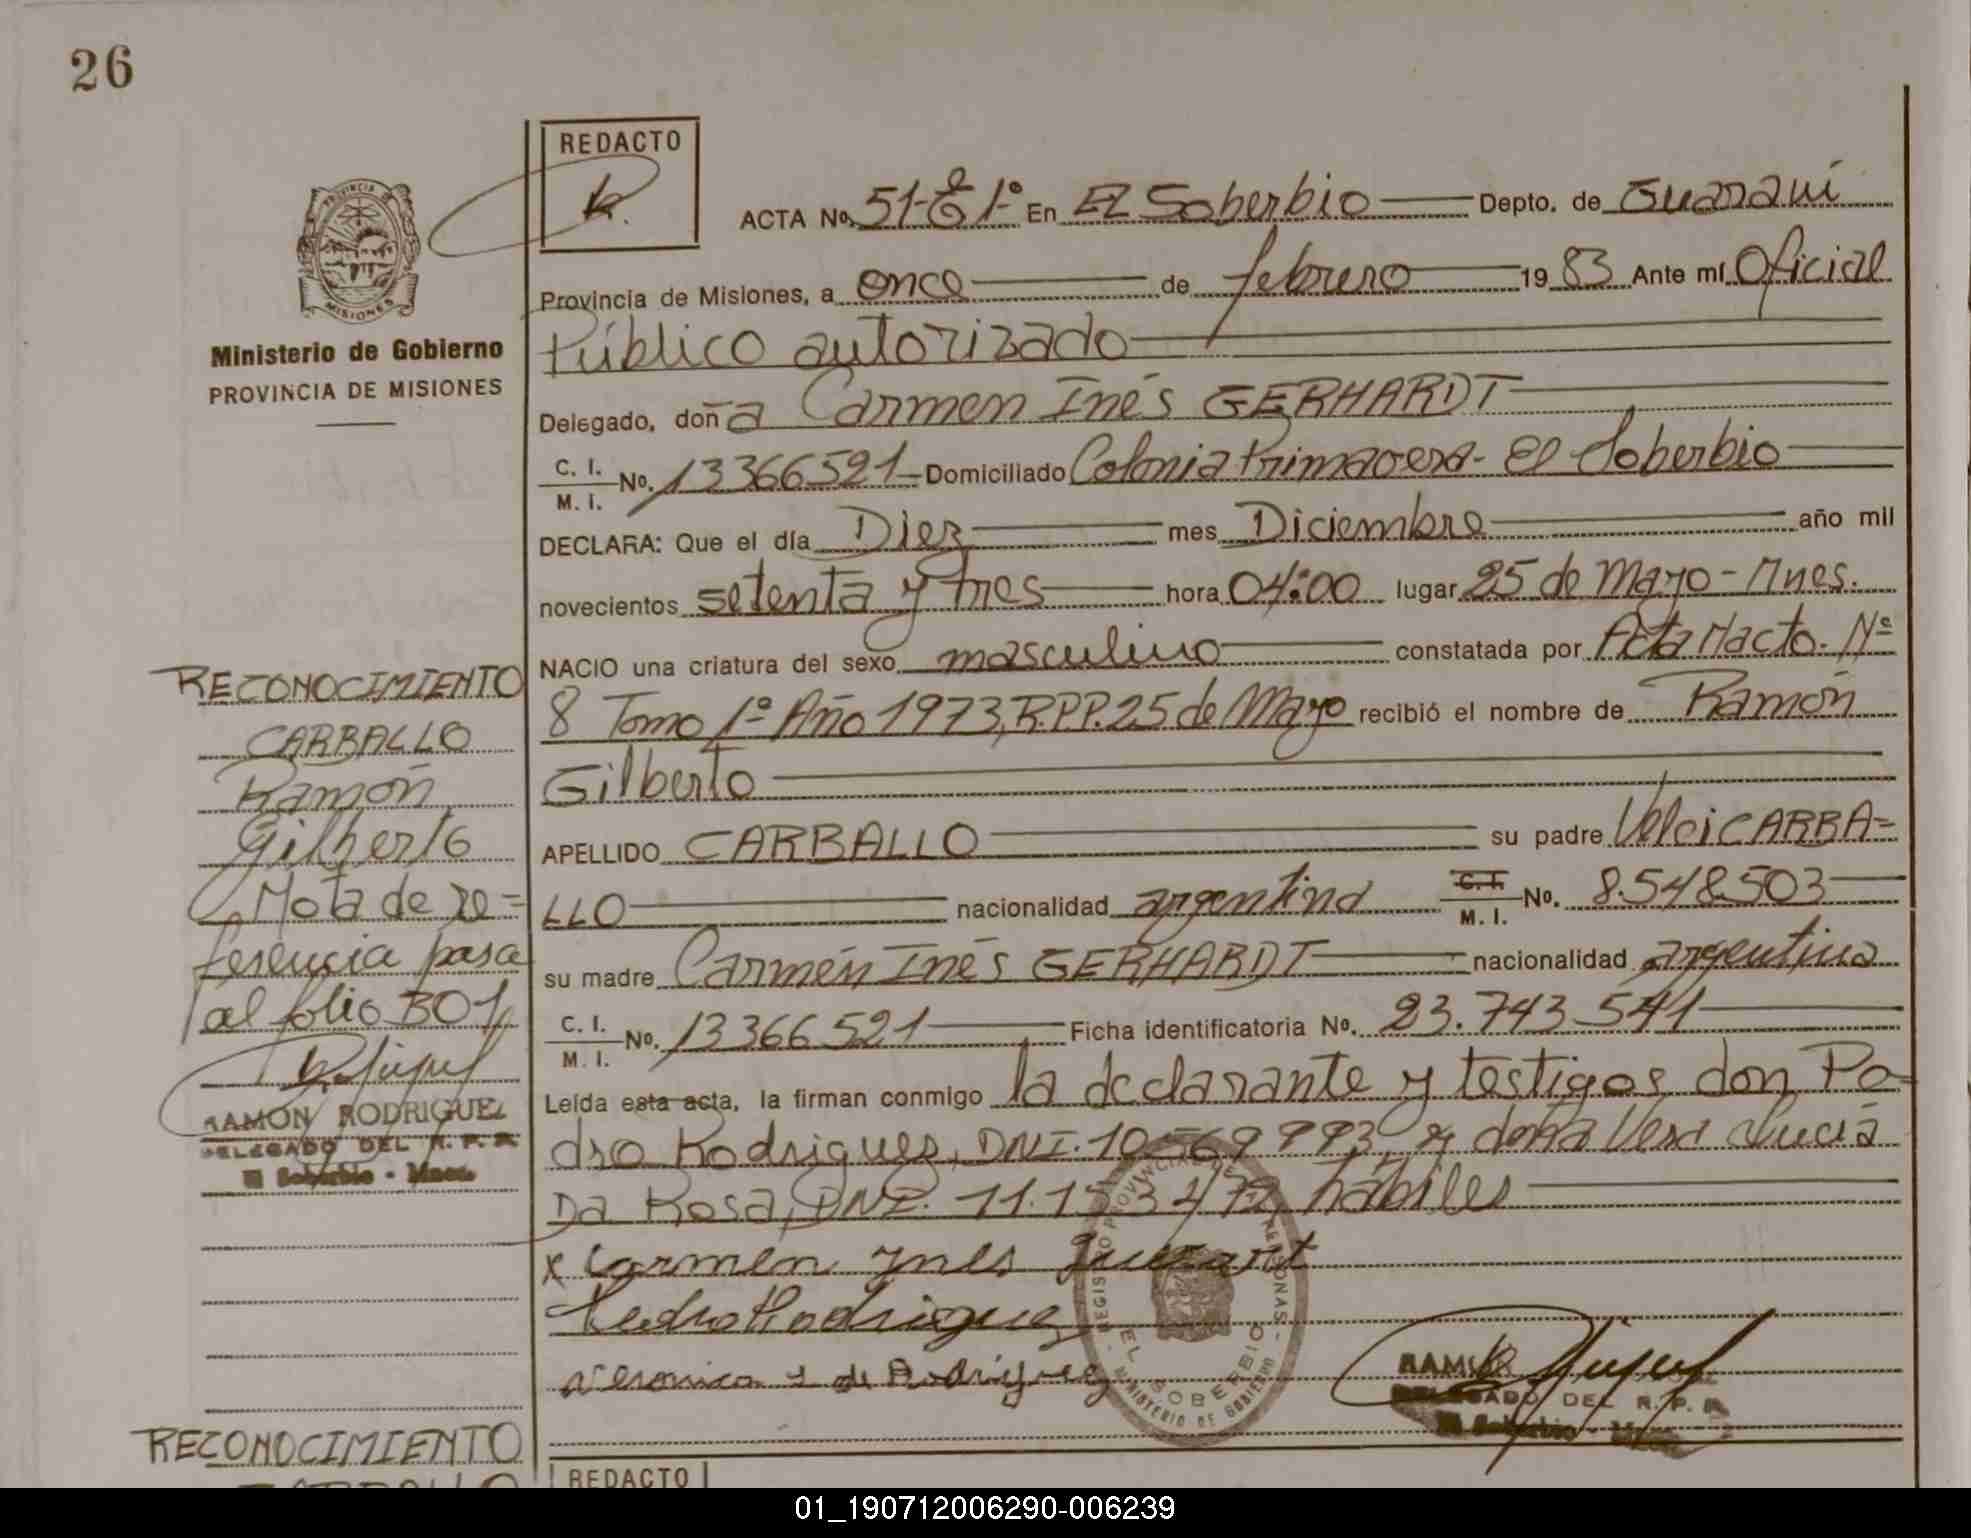 26
REDACTO
PROVINCIA DE
MISIONES
Ministerio de Gobierno
PROVINCIA DE MISIONES
ACTA No. 51-Eº 1º En El Soberbio Depto. de Guaraní
Provincia de Misiones, a once de febrero 19 83 Ante mí Oficial
Público autorizado
Delegado, doña Carmen Inés GERHARDT
C. I. / M. I. No. 13366521 Domiciliado Colonia Primavera - El Soberbio
DECLARA: Que el día Diez mes Diciembre año mil
novecientos setenta y tres hora 04:00 lugar 25 de Mayo - Mnes.
NACIO una criatura del sexo masculino constatada por Acta Nacto. Nº
8 Tomo 1º Año 1973, R.P.P. 25 de Mayo recibió el nombre de Ramón
Gilberto
APELLIDO CARBALLO su padre Velci CARBA=
LLO nacionalidad argentina C. I. / M. I. No. 8.548.503
su madre Carmén Inés GERHARDT nacionalidad argentina
C. I. / M. I. No. 13366521 Ficha identificatoria No. 23.743.541
Leída esta acta, la firman conmigo la declarante y testigos don Pe=
dro Rodriguez, DNI. 10 y doña Vera Lucia
Da Rosa, DNI. hábiles
x Carmen ynes
Pedro Rodriguez
de Rodriguez
REGISTRO PROVINCIAL DE LAS PERSONAS - MINISTERIO DE GOBIERNO
EL SOBERBIO
DELEGADO DEL R. P. P.
El Soberbio - Mnes.
RECONOCIMIENTO
CARBALLO
Ramón
Gilberto
Nota de re=
ferencia pasa
al folio 301
RAMON RODRIGUEZ
DELEGADO DEL R. P. P.
El Soberbio - Mnes.
RECONOCIMIENTO
CARBALLO
REDACTO
01_190712006290-006239